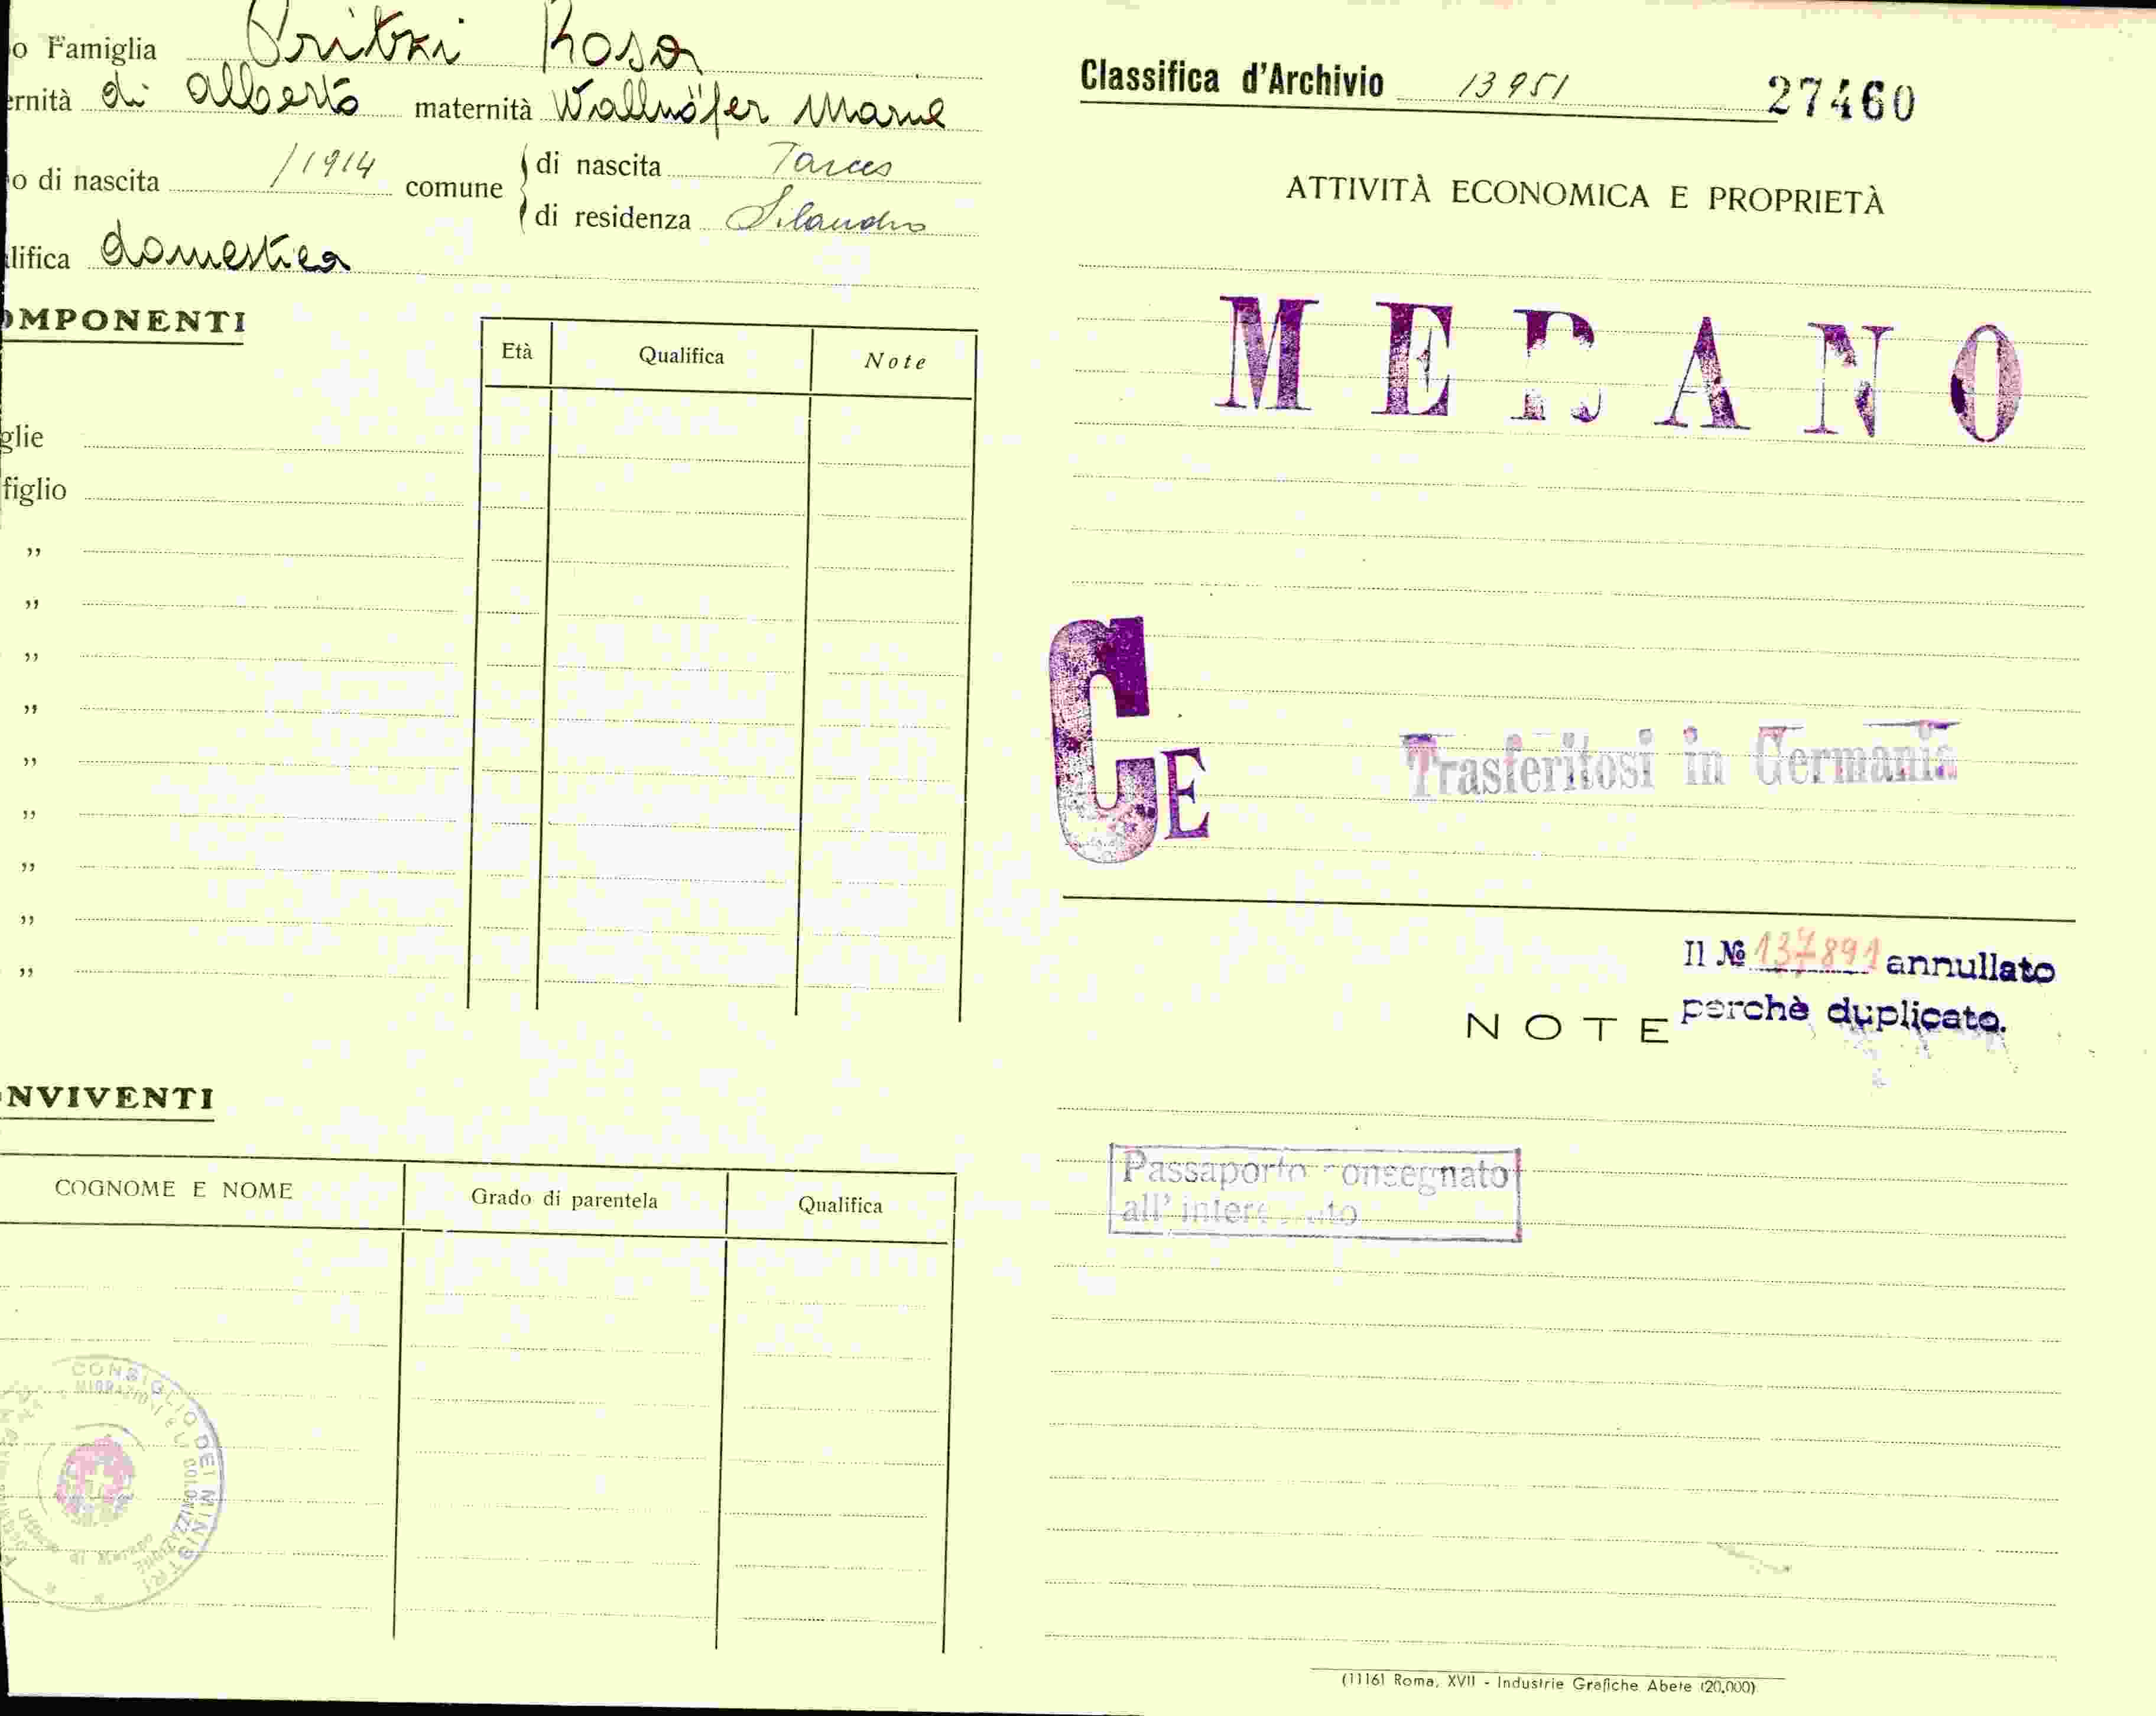 o Famiglia Pritzi Rosa
ernità di Alberto maternità Wallnöfer Marie
o di nascita /1914 comune di nascita Tarces
di residenza Silandro
lifica domestica
OMPONENTI
Età Qualifica Note
glie
figlio
"
"
"
"
"
"
"
"
"
NVIVENTI
COGNOME E NOME Grado di parentela Qualifica
CONSIGLIO DEI MINISTRI
Classifica d'Archivio 13951 27460
ATTIVITÀ ECONOMICA E PROPRIETÀ
MERANO
CE
Trasferitosi in Germania
Il № 137891 annullato
perchè duplicato.
NOTE
Passaporto consegnato
all'interessato
(1116) Roma, XVII - Industrie Grafiche Abete (20.000)